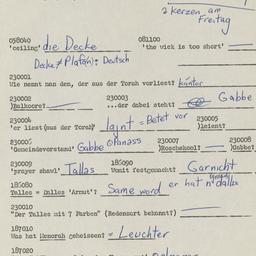 2 kerzen am
Freitag
058040 081100
'ceiling' die Decke 'the wick is too short'
Decke ≠ Plafo(n): Deutsch
230001
Wie nennt man den, der aus der Torah vorliest? kantor
230002 230003
)Balkoore? ...der dabei steht: Gabbe
230004 230005
'er liest (aus der Torah)' laint = Betet vor )leient?
230006 230007 230008
'Gemeindevorstand' Gabbe Parnass )Roschekool? )Gabbe?
230009 185090
'prayer shawl' Tallas Womit festgemacht? Garnicht
185080
Talles = Dalles 'Armut'? Same word er hat n' dalles
230010
"Der Talles mit 7 Farben" (Redensart bekannt?)
187010
Was hat Menorah geheissen? = Leuchter
187020